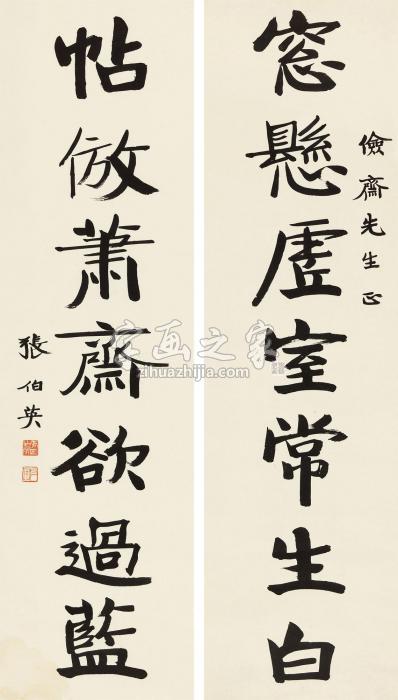 儉齋先生正
窓懸虛室常生白
帖倣蕭齋欲過藍
張伯英
字画之家
zihuazhijia.com